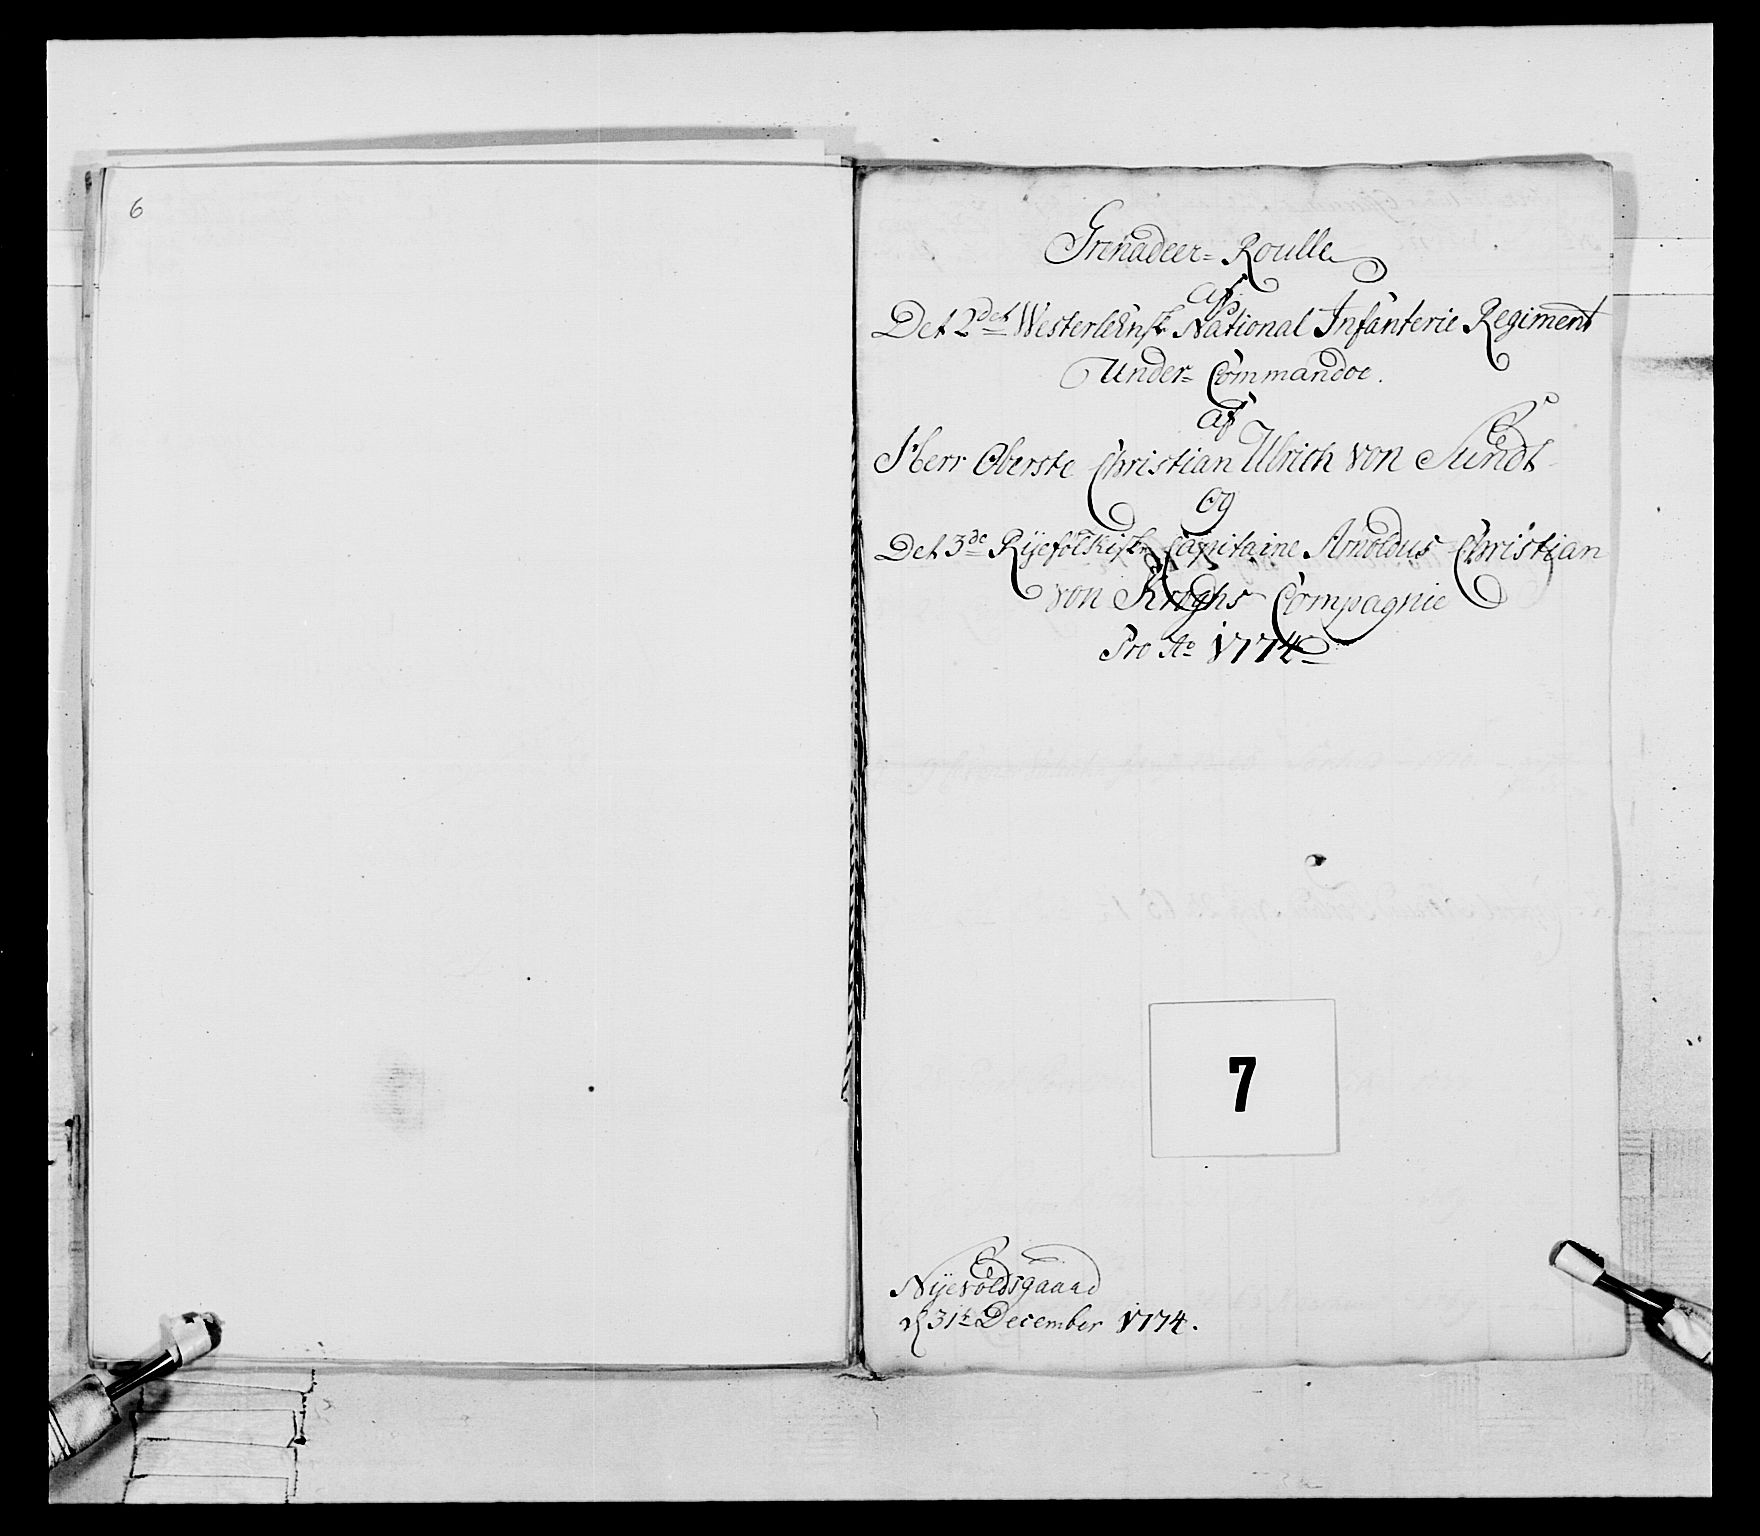 6
Grenadeer= Roulle
af
Det 2det Westerlensk National Infanterie Regiment
Under= Commandoe.
af
Herr Oberste Christian Ulrich von Sundt
og
Det 3de Ryefölkiske Capitaine Arnoldus Christian
von Kroghs Compagnie
Pro Ao 1774
7
Nyevoldsgaard
d 31te December 1774.